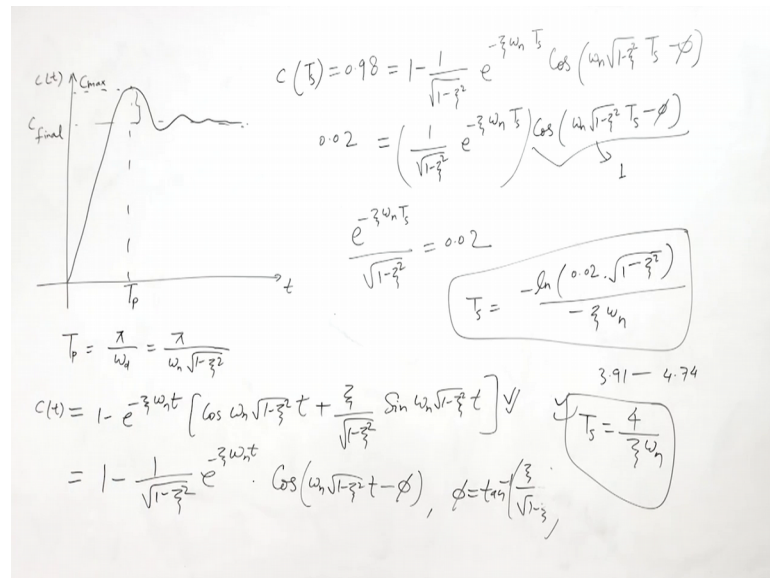 C(t)
Cmax
C final
t
Tp
C(Ts) = 0.98 = 1 - 1/√(1-ξ²) e^(-ξωn Ts) Cos(ωn√(1-ξ²) Ts - φ)
0.02 = (1/√(1-ξ²) e^(-ξωn Ts)) Cos(ωn√(1-ξ²) Ts - φ)
1
e^(-ξωn Ts)/√(1-ξ²) = 0.02
Ts = -ln(0.02 . √(1-ξ²))/(-ξωn)
Tp = π/ωd = π/(ωn√(1-ξ²))
3.91 — 4.74
C(t) = 1 - e^(-ξωn t) [Cos ωn√(1-ξ²) t + ξ/√(1-ξ²) Sin ωn√(1-ξ²) t]
Ts = 4/(ξωn)
= 1 - 1/√(1-ξ²) e^(-ξωn t) . Cos(ωn√(1-ξ²) t - φ), φ = tan⁻¹(ξ/√(1-ξ